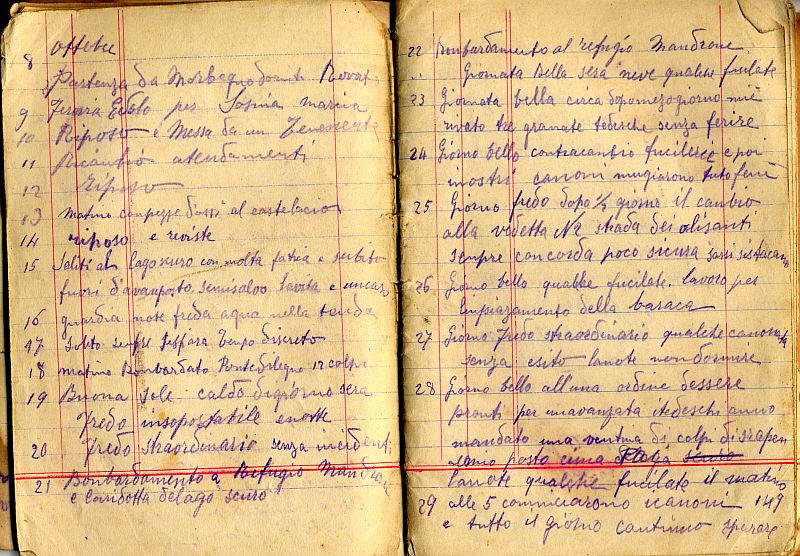 ottobre
8
Partenza da Morbegno Rovato
9 Ferara per marina
10 Riposo e Messa da un Tenenente
11 Ricambio atendamenti
12 Riposo
13 matino al castelacio
14 riposo e reviste
15 Saliti al lago scuro con molta fatica e subito
fuori d'avamposto. e
16 guardia note freda aqua nella tenda
17 solito sempre Tempo discreto
18 matino Bombardato Pontedilegno 12 colpi
19 Buona Sole caldo digiorno sera
Fredo insopostabile enotte
20 Fredo straordinario senza incidenti
21 Bombardamento a Refugio Mandron
e caridotta delago scuro
22 Bonbardamento al refugio Mandrone.
Giornata Bella sera neve qualche fucilate
23 Giornata bella circa dopomezogiorno
rivato tre granate tedesche senza ferire
24 Giorno bello contracambio fucilerie e poi
inostri canoni mugiarono tuto
25 Giorno fredo dopo ½ giorno il cambio
alla vedetta Na strada dei alisanti
sempre concorda poco sicura
26 Giorno bello qualke fucilate. lavoro per
Empiazamento della baraca
27 Giorno Fredo straordinario qualche canonata
senza esito lanote non dormire
28 Giorno bello alluna ordine dessere
pronti per unavanzata itedeschi anno
mandato una ventina di colpi di srapen
posto cima
lanote qualche fucilato il matino
29 alle 5 cominciarono icanoni 149
e tutto il giorno continuo sparare